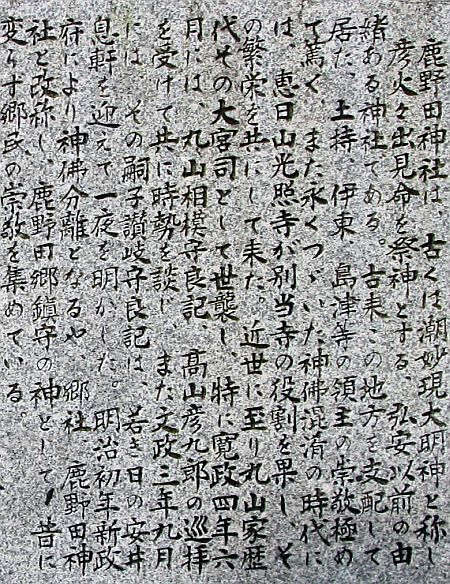 鹿野田神社は、古くは潮妙現大明神と称し
彦火々出見命を祭神とする、弘安以前の由
緒ある神社である。古来この地方を支配して
居た、土持、伊東、島津等の領主の崇敬極め
て篤く、また永くつゞいた神佛混淆の時代に
は、恵日山光照寺が別当寺の役割を果し、そ
の繁栄を共にして来た。近世に至り丸山家歴
代その大宮司として世襲し、特に寛政四年六
月には、丸山相模守良記、高山彦九郎の巡拝
を受けて共に時勢を談じ、また文政三年九月
には、その嗣子讃岐守良記は、若き日の安井
息軒を迎えて一夜を明かした。明治初年新政
府により神佛分離となるや、郷社 鹿野田神
社と改称し、鹿野田郷鎮守の神として、昔に
変りず郷民の崇敬を集めている。